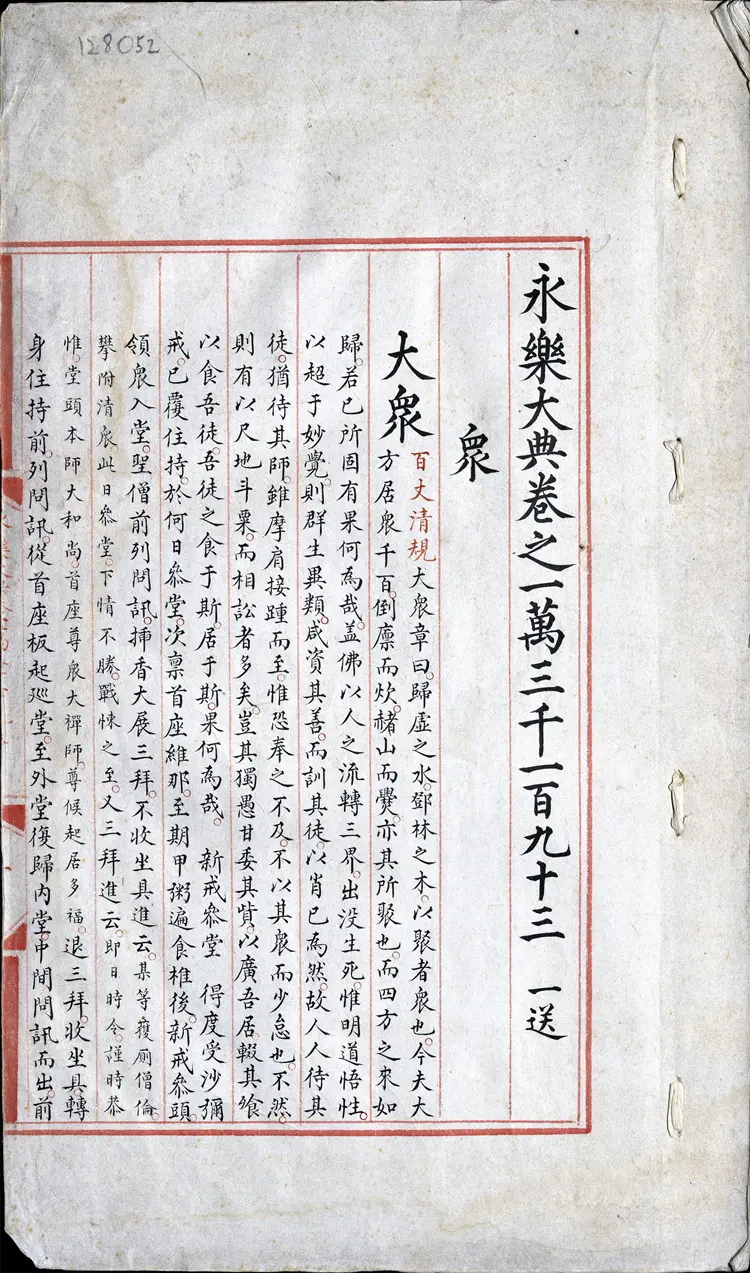 128052
永樂大典卷之一萬三千一百九十三 一送
衆
大衆 百丈清規大衆章曰。歸虛之水。鄧林之木。以聚者衆也。今夫大
方居衆千百。倒廪而炊。赭山而爨。亦其所聚也。而四方之來如
歸。若己所固有果何為哉。盖佛以人之流轉三界。出没生死。惟明道悟性。
以超于妙覺。則群生異類。咸資其善。而訓其徒。以肖己為然。故人人待其
徒。猶待其師。雖摩肩接踵而至。惟恐奉之不及。不以其衆而少怠也。不然。
則有以尺地斗粟。而相訟者多矣。豈其獨愚甘委其貲。以廣吾居。輟其飧
以食吾徒。吾徒之食于斯。居于斯。果何為哉。 新戒叅堂 得度受沙彌
戒。已覆住持。於何日叅堂。次禀首座維那。至期甲粥遍食椎後。新戒叅頭
領衆入堂。聖僧前列問訊。揷香大展三拜。不收坐具進云。某等獲廁僧倫。
攀附清衆。此日叅堂。下情不勝。戰悚之至。又三拜進云。即日時令。謹時恭
惟。堂頭本師大和尚。首座尊衆大禪師。尊候起居多福。退三拜。收坐具轉
身住持前。列問訊。從首座板起巡堂。至外堂復歸内堂。中間問訊而出。前